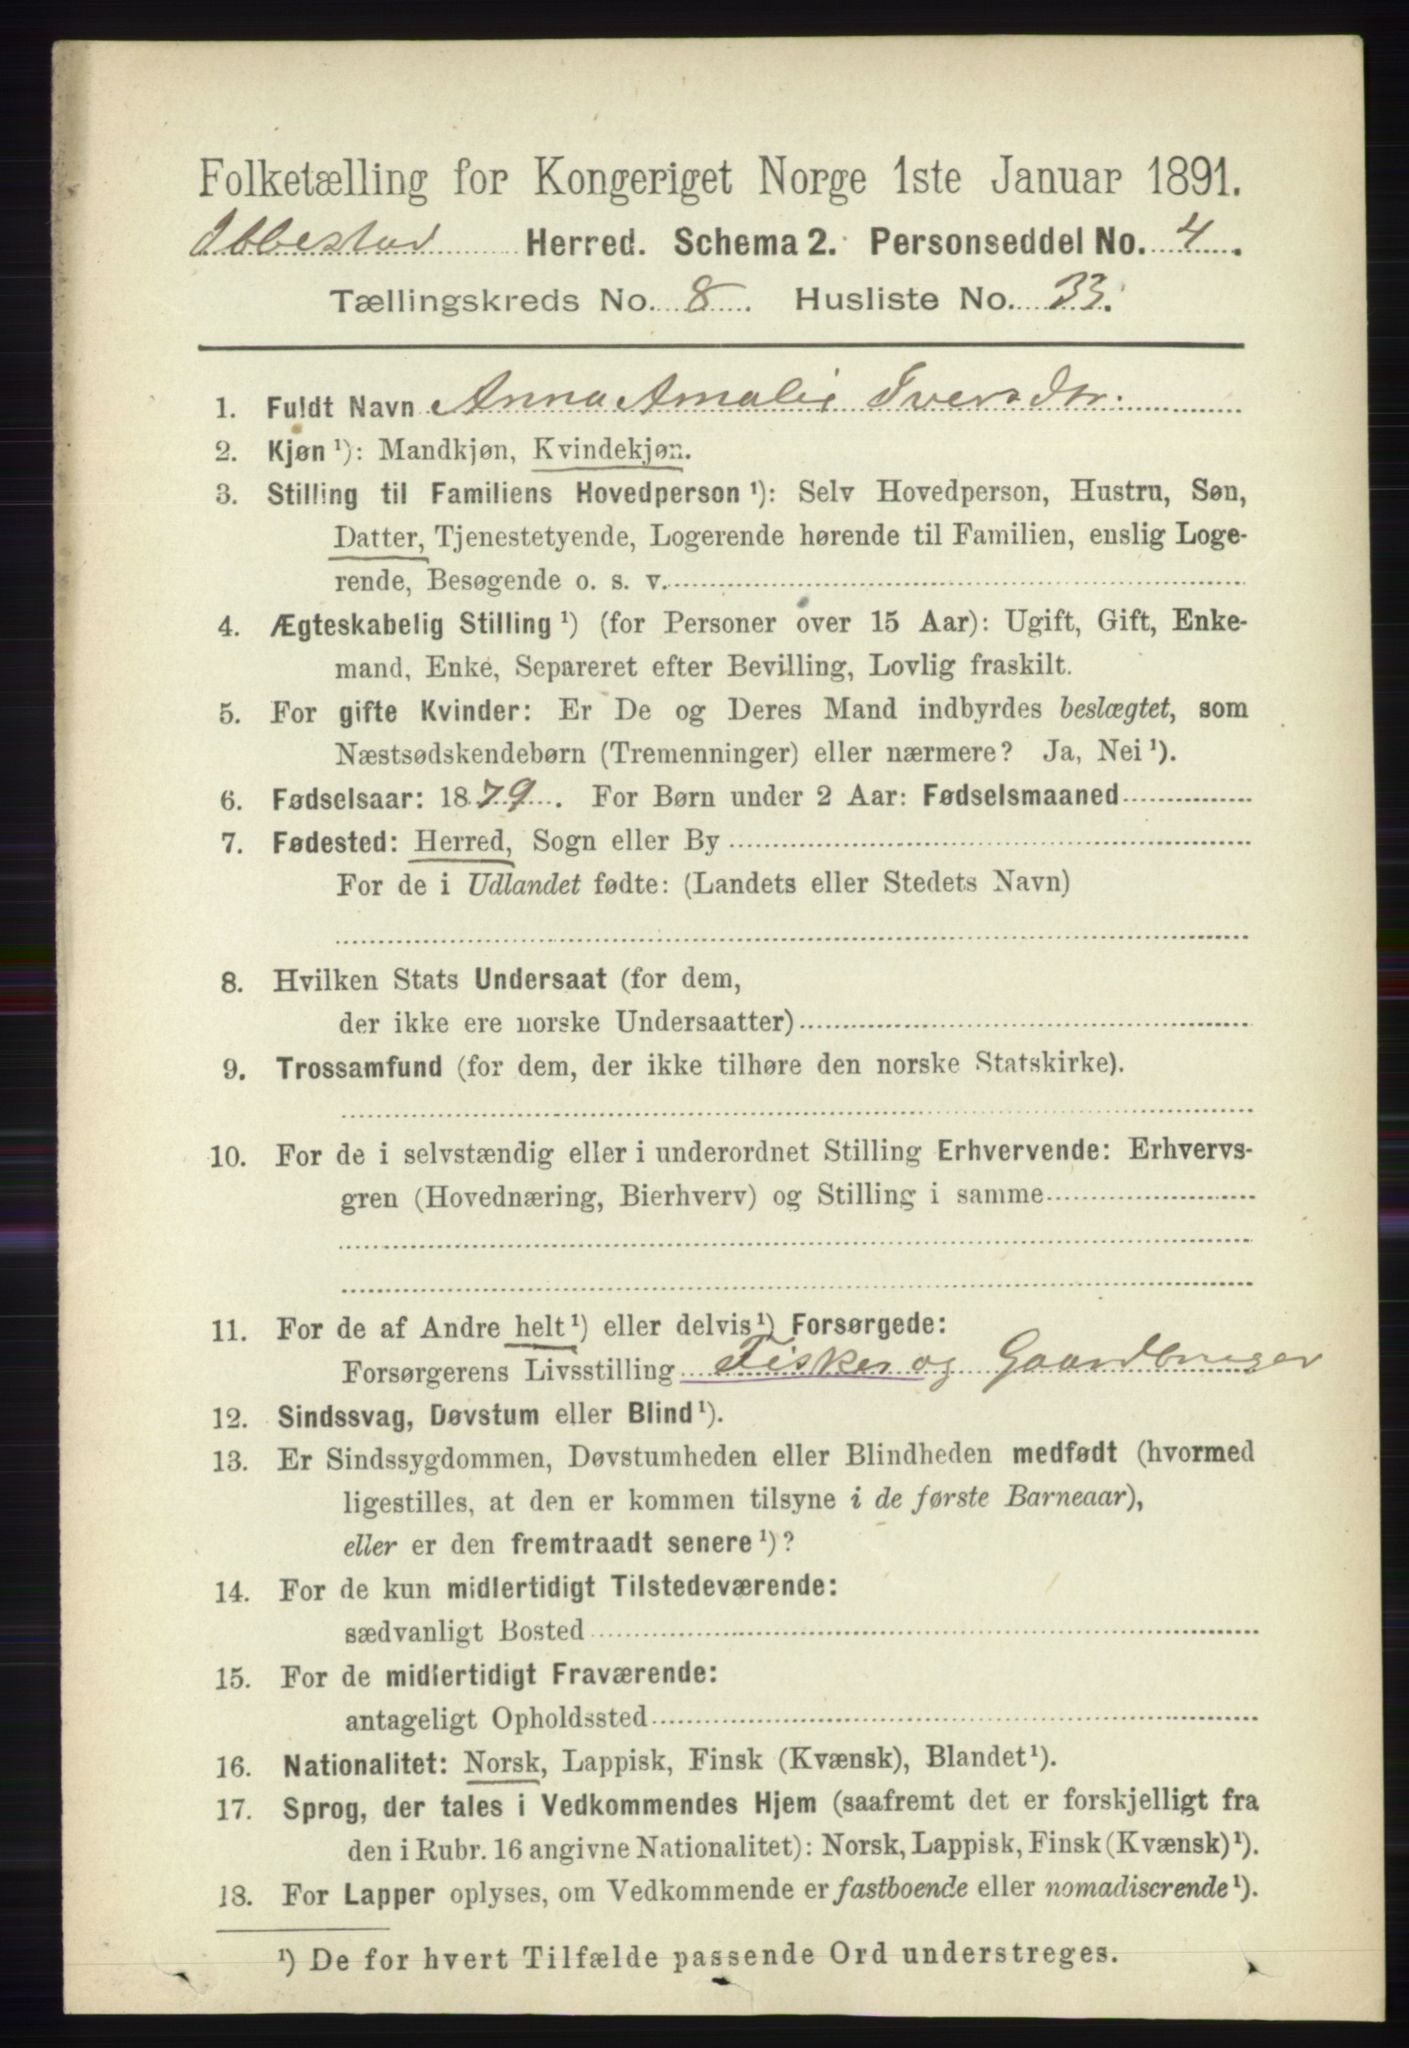 Folketælling for Kongeriget Norge 1ste Januar 1891.
Ibbestad Herred. Schema 2. Personseddel No. 4.
Tællingskreds No. 8. Husliste No. 33.
1. Fuldt Navn Anna Amalie Iversdtr.
2. Kjøn ¹): Mandkjøn, Kvindekjøn.
3. Stilling til Familiens Hovedperson ¹): Selv Hovedperson, Hustru, Søn,
Datter, Tjenestetyende, Logerende hørende til Familien, enslig Loge-
rende, Besøgende o. s. v.
4. Ægteskabelig Stilling ¹) (for Personer over 15 Aar): Ugift, Gift, Enke-
mand, Enke, Separeret efter Bevilling, Lovlig fraskilt.
5. For gifte Kvinder: Er De og Deres Mand indbyrdes beslægtet, som
Næstsødskendebørn (Tremenninger) eller nærmere? Ja, Nei ¹).
6. Fødselsaar: 1879. For Børn under 2 Aar: Fødselsmaaned
7. Fødested: Herred, Sogn eller By
For de i Udlandet fødte: (Landets eller Stedets Navn)
8. Hvilken Stats Undersaat (for dem,
der ikke ere norske Undersaatter)
9. Trossamfund (for dem, der ikke tilhøre den norske Statskirke).
10. For de i selvstændig eller i underordnet Stilling Erhvervende: Erhvervs-
gren (Hovednæring, Bierhverv) og Stilling i samme
11. For de af Andre helt ¹) eller delvis ¹) Forsørgede:
Forsørgerens Livsstilling Fisker og Gaardbruger
12. Sindssvag, Døvstum eller Blind ¹).
13. Er Sindssygdommen, Døvstumheden eller Blindheden medfødt (hvormed
ligestilles, at den er kommen tilsyne i de første Barneaar),
eller er den fremtraadt senere ¹)?
14. For de kun midlertidigt Tilstedeværende:
sædvanligt Bosted
15. For de midlertidigt Fraværende:
antageligt Opholdssted
16. Nationalitet: Norsk, Lappisk, Finsk (Kvænsk), Blandet ¹).
17. Sprog, der tales i Vedkommendes Hjem (saafremt det er forskjelligt fra
den i Rubr. 16 angivne Nationalitet): Norsk, Lappisk, Finsk (Kvænsk) ¹).
18. For Lapper oplyses, om Vedkommende er fastboende eller nomadiserende ¹).
¹) De for hvert Tilfælde passende Ord understreges.